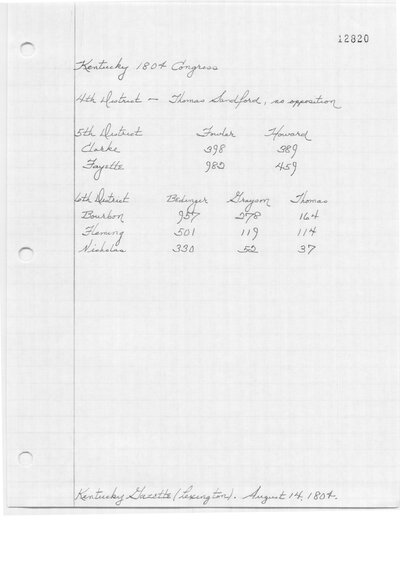 12820
Kentucky 1804 Congress
4th District — Thomas Sandford, no opposition
5th District Fowler Howard
Clarke 398 389
Fayette 982 459
6th District Bedinger Grayson Thomas
Bourbon 957 278 164
Fleming 501 119 114
Nicholas 330 52 37
Kentucky Gazette (Lexington). August 14, 1804.